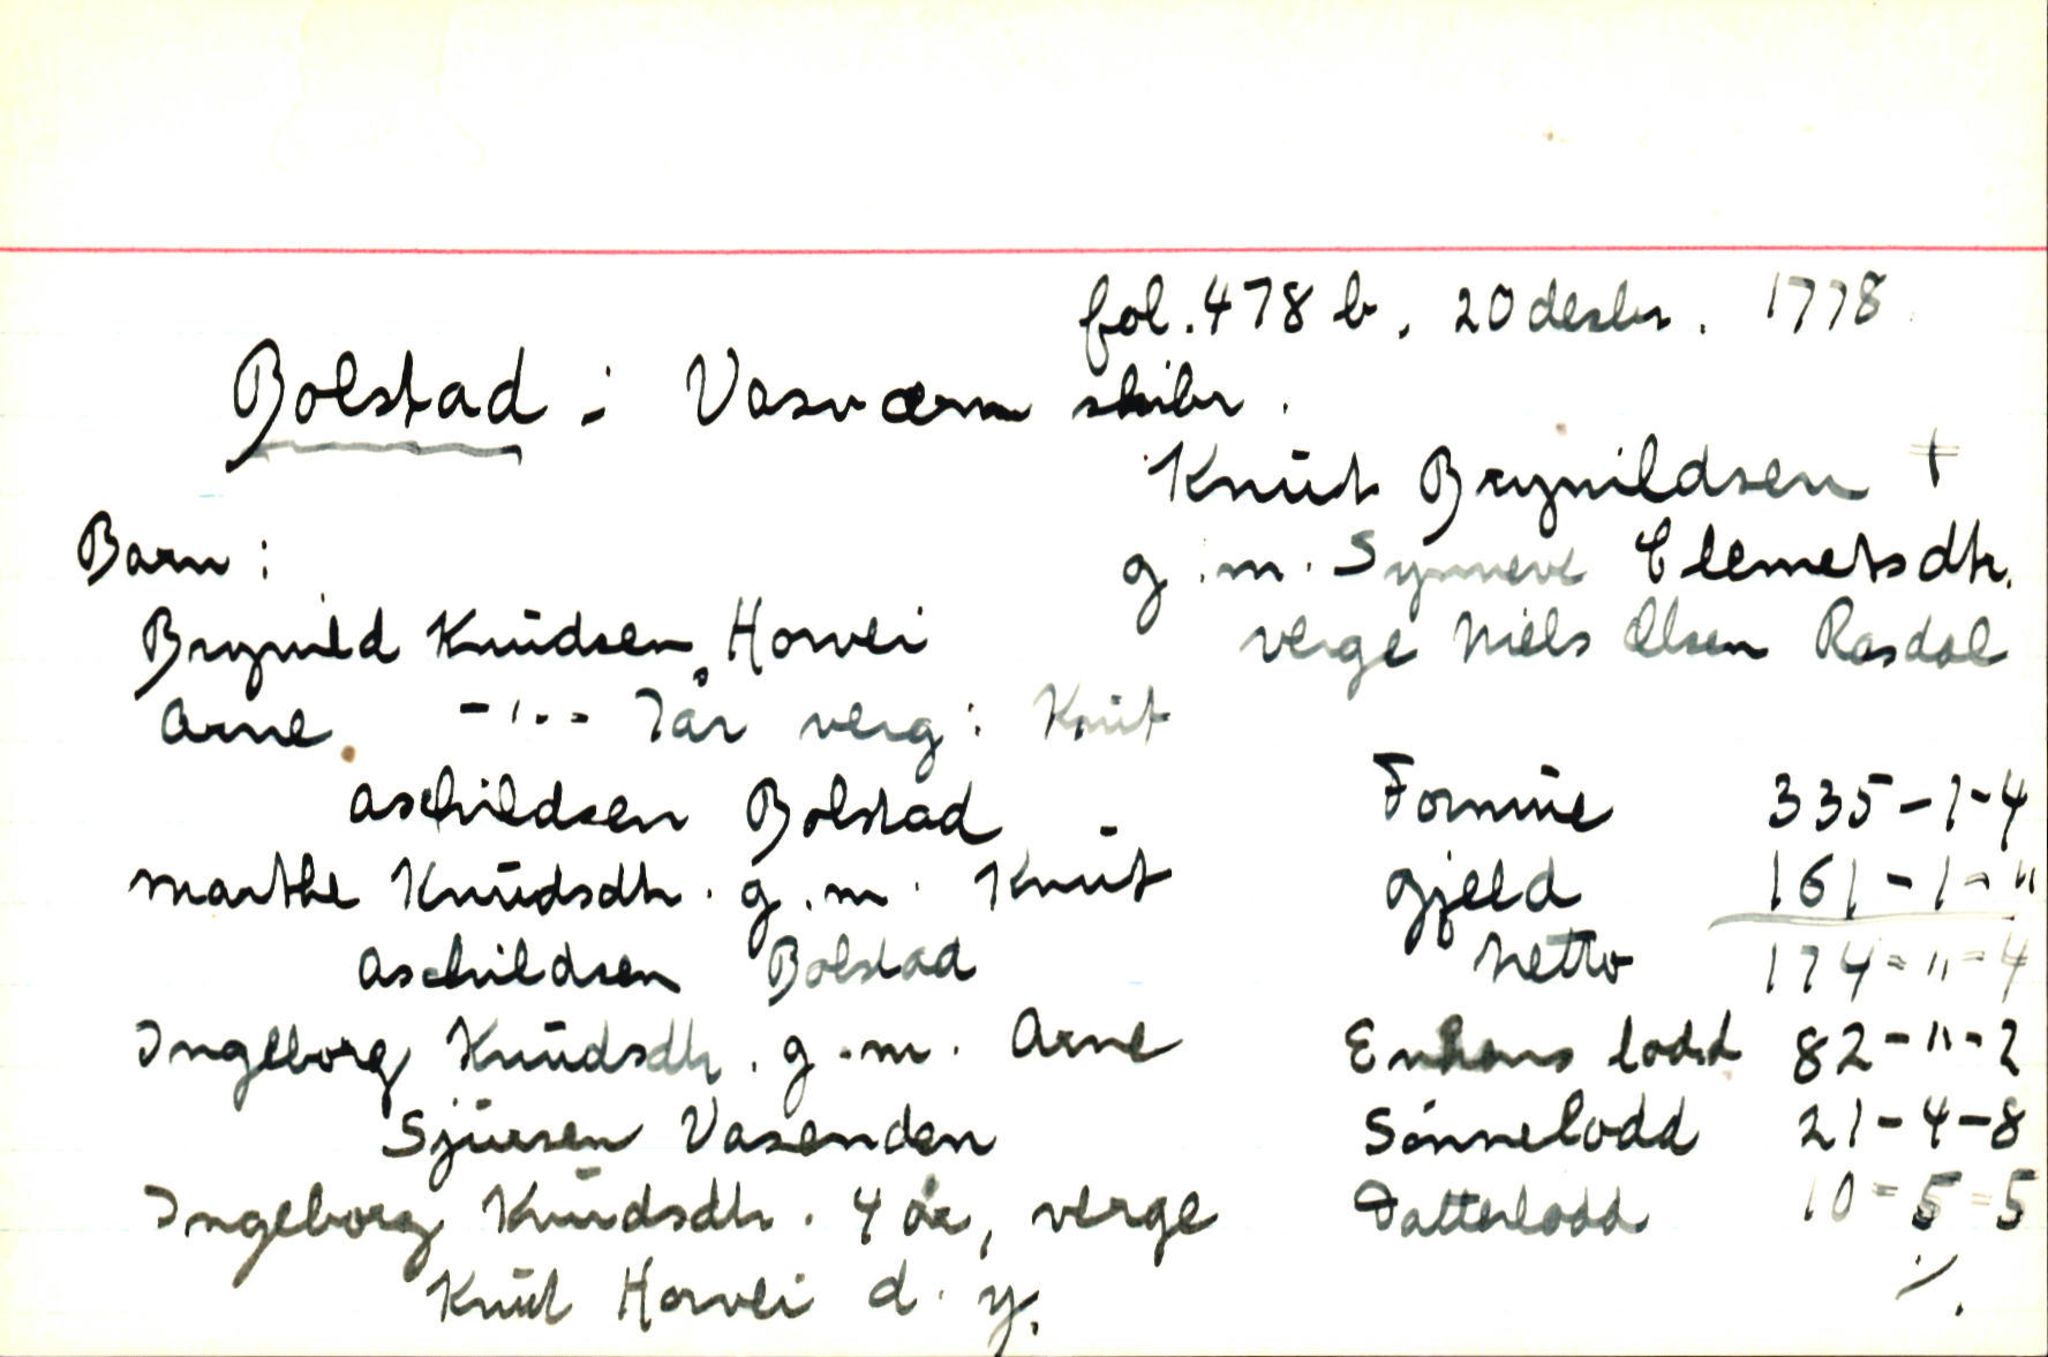 fol. 478 b. 20 desbr. 1778
Bolstad : Vasværm skibr.
Knut Brynildsen +
g.m. Synneve Clemetsdtr.
verge Niels Olsen Rasdal
Barn :
Brynild Knudsen, Horvei
Arne -"- 7 år verg: Knut
Aschildsen Bolstad
Marthe Knudsdtr. g.m. Knut
Aschildsen Bolstad
Ingeborg Knudsdtr. g.m. Arne
Sjursen Vasenden
Ingeborg Knudsdtr. 4 år, verge
Knut Horvei d.y.
Formue 335-1-4
Gjeld 161-1-"
Netto 174-"-4
Enkens lodd 82-"-2
Sønnelodd 21-4-8
Datterlodd 10-5-5